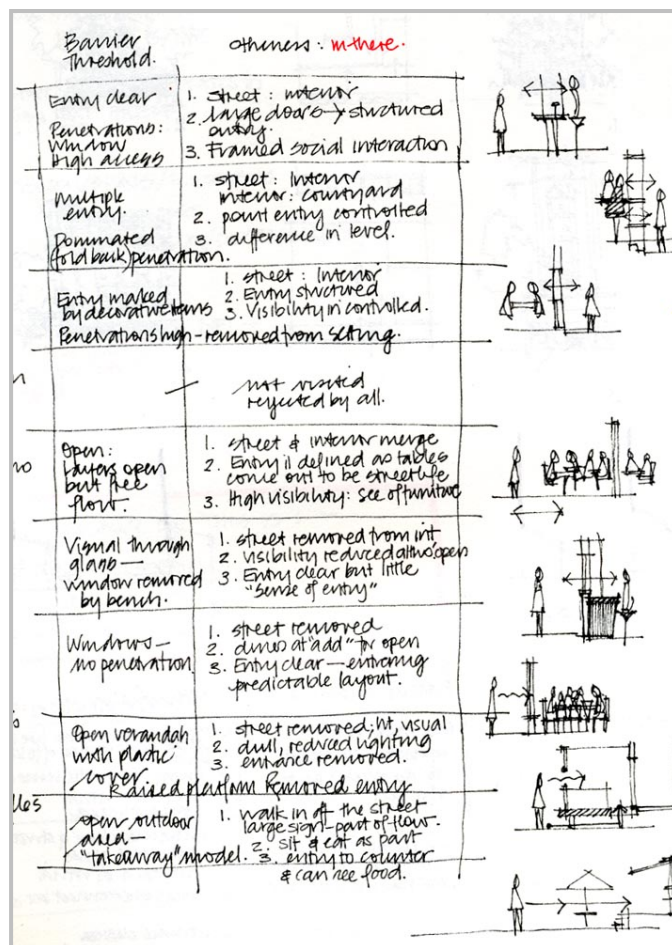 Barrier Threshold.
otherness: in-there.
Entry clear
Penetrations:
window
High access
1. street: interior
2. Large doors → structured
entry.
3. Framed social interaction
multiple
entry.
Dominated
(fold back) penetration.
1. street: Interior
interior: courtyard
2. point entry controlled
3. difference in level.
Entry marked
by decorative items
Penetrations high - removed from setting.
1. street: Interior
2. Entry structured
3. Visibility in controlled.
not visited
rejected by all.
Open:
Layers open
but free
flow.
1. street & interior merge
2. Entry is defined as tables
come out to be street life
3. High visibility: see of furniture
Visual through
glass —
window removed
by bench.
1. street removed from int.
2. visibility reduced altho' open
3. Entry clear but little
"sense of entry"
Windows —
no penetration
1. street removed
2. at "add" for open
3. Entry clear — entering
predictable layout.
Open verandah
with plastic
cover
1. street removed; int, visual
2. dull, reduced lighting
3. entrance removed.
Raised platform Removed entry
open outdoor
area —
"takeaway" model.
1. walk in off the street
large sign - part of flow.
2. sit & eat as part
3. entry to counter
& can see food.